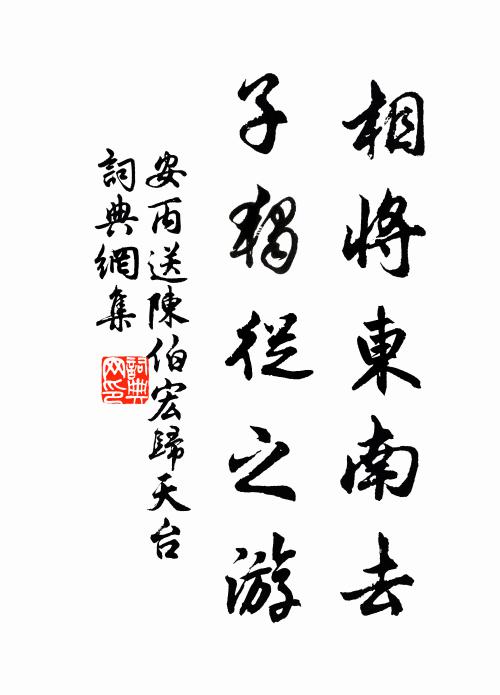 相將東南去
子獨從之游
安丙送陳伯宏歸天台
詞典網集
詞典網印